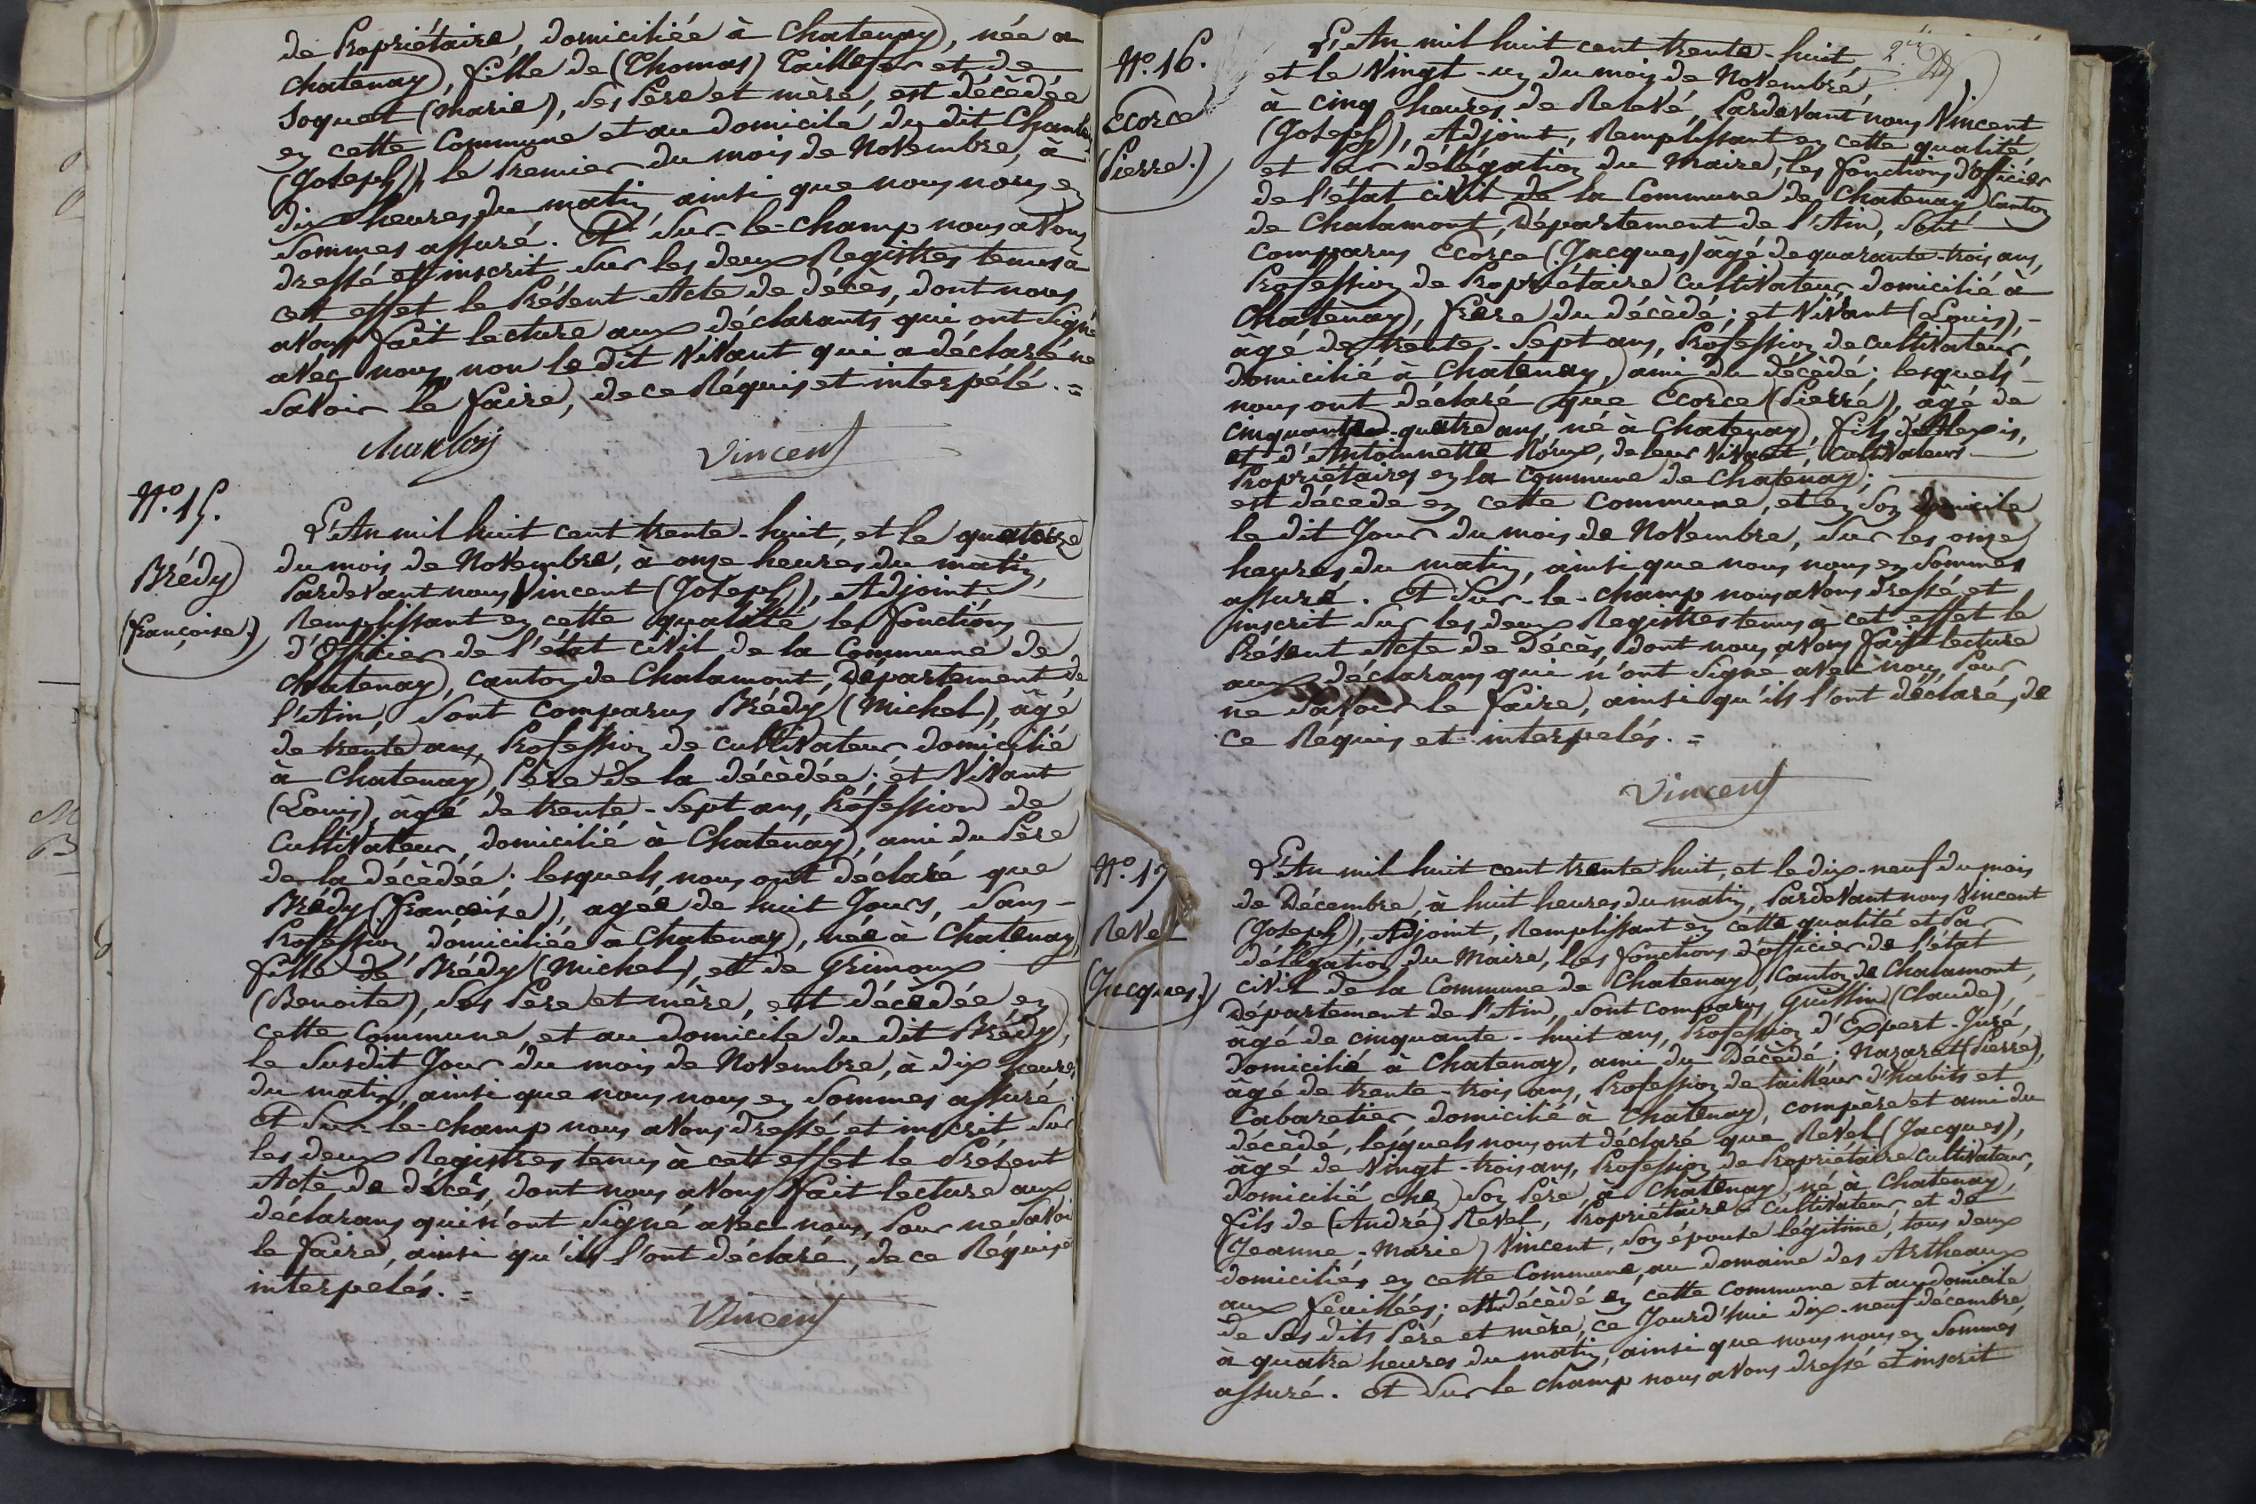 de Propriétaire, domiciliée à Chatenay, née a
chatenay, fille de (Thomas) Taillefer et de
Soquet (Marie), ses Père et mère, est décèdée
en cette Commune et au domicile du dit
(Joseph), le Premier du mois de Novembre, à
dix heures du matin ainsi que nous nous en
sommes assuré. Et sur-le-champ nous avons
dressé et inscrit sur les deux Registres tenus à
cet effet le Présent Acte de décès, dont nous
avons fait lecture aux déclarants qui ont signé
avec nous, non le dit Vivant qui a déclaré ne
savoir le faire, de ce Réquis et interpélé. =
Vincent
N.º 15.
Brédy
(françoise.)
L'An mil huit cent trente-huit, et le quatorze
du mois de Novembre, à onze heures du matin,
Pardevant nous Vincent (Joseph), Adjoint
Remplissant en cette qualité les fonctions
d'Officier de l'état civil de la Commune de
Chatenay, canton de Chalamont, département de
l'Ain, sont comparus Brédy (Michel), âgé
de trente ans, Profession de cultivateur domicilié
à Chatenay, Père de la décèdée; et Vivant
(Louis), âgé de trente-sept ans, Profession de
Cultivateur, domicilié à Chatenay, ami du Père
de la décèdée; lesquels nous ont déclaré que
Brédy (françoise), agée de huit Jours, sans-
Profession, domiciliée à Chatenay, née à Chatenay,
fille de Brédy (Michel), et de Grimoux
(Benoite), ses Père et mère, est décèdée en
cette Commune, et au domicile du dit Brédy,
le susdit Jour du mois de Novembre, à dix heures
du matin, ainsi que nous nous en sommes assuré.
Et sur-le-champ nous avons dressé et inscrit sur
les deux Registres tenus à cet effet le Présent
Acte de décès, dont nous avons fait lecture aux
déclarans qui n'ont signé avec nous, Pour ne savoir
le faire, ainsi qu'ils l'ont déclaré, de ce Réquis et
interpelés. =
Vincent
N.º 16.
Ecorce
(Pierre.)
L'An mil huit cent trente-huit
et le Vingt-un du mois de Novembre,
à cinq heures de Relevé, Pardevant nous Vincent
(Joseph), Adjoint, Remplissant en cette qualité
et Par délégation du Maire, les fonctions d'officier
de l'état civil de la Commune de Chatenay Canton
de Chalamont, Département de l'Ain, sont
comparus Ecorce (Jacques) âgé de quarante-trois ans,
Profession de Propriétaire Cultivateur domicilié à
Chatenay, frère du décèdé; et Vivant (Louis),-
âgé de trente-sept ans, Profession de cultivateur,
domicilié à Chatenay, ami du décèdé; lesquels
nous ont déclaré que Ecorce (Pierre), âgé de
cinquante-quatre ans, né à Chatenay, fils d'Alexis,
et d'Antoinette, de leur vivant, cultivateurs
Propriétaires en la Commune de Chatenay;
est décèdé en cette Commune, et en son domicile
le dit Jour du mois de Novembre, sur les onze
heures du matin, ainsi que nous nous en sommes
assuré. Et sur-le-champ nous avons dressé et
inscrit sur les deux Registres tenus à cet effet le
Présent Acte de Décès, dont nous avons fait lecture
aux déclarans qui n'ont signé avec nous, Pour
ne savoir le faire, ainsi qu'ils l'ont déclaré, de
ce Réquis et interpelés. =
Vincent
N.º 17
Revel
(Jacques.)
L'An mil huit cent trente huit, et le dix-neuf du mois
de Décembre, à huit heures du matin, Pardevant nous Vincent
(Joseph), Adjoint, Remplissant en cette qualité et Par
délégation du Maire, les fonctions d'officier de l'état
civil de la Commune de Chatenay, Canton de Chalamont,
département de l'Ain, sont comparus Guissin (Claude),
âgé de cinquante-huit ans, Profession d'Expert-Juré,
domicilié à Chatenay, ami du Décèdé; Nazaret (Pierre),
âgé de trente-trois ans, Profession de tailleur d'habits et
Cabaretier domicilié à Chatenay, compère et ami du
décèdé, lesquels nous ont déclaré que Revel (Jacques),
âgé de Vingt-trois ans, Profession de Propriétaire Cultivateur,
domicilié chez son Père, à Chatenay, né à Chatenay,
fils de (André) Revel, Propriétaire Cultivateur, et de
(Jeanne-Marie) Vincent, son épouse légitime, tous deux
domiciliés en cette Commune, au domaine des Artheaux
aux feuillées; est décèdé en cette commune et au domicile
de ses dits Père et mère, ce Jourd'hui dix-neuf décembre,
à quatre heures du matin, ainsi que nous nous en sommes
assuré. Et sur le champ nous avons dressé et inscrit